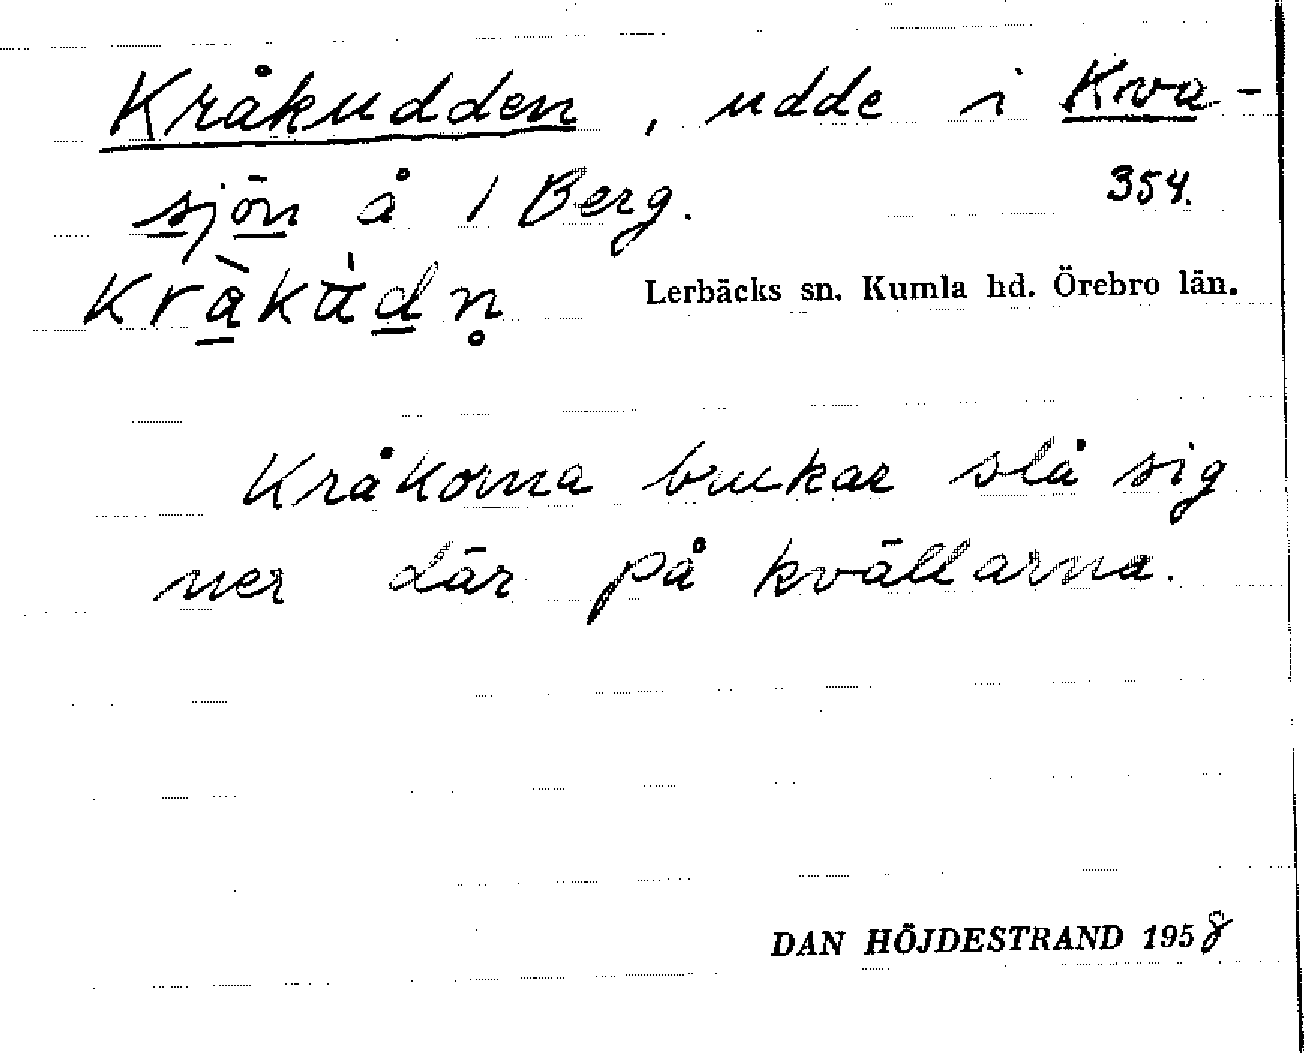 Kråkudden, udde i Kva-
sjön å 1 Berg. 354.
Lerbäcks sn. Kumla hd. Örebro län.
Kråkorna brukar slå sig
ner där på kvällarna.
DAN HÖJDESTRAND 1958